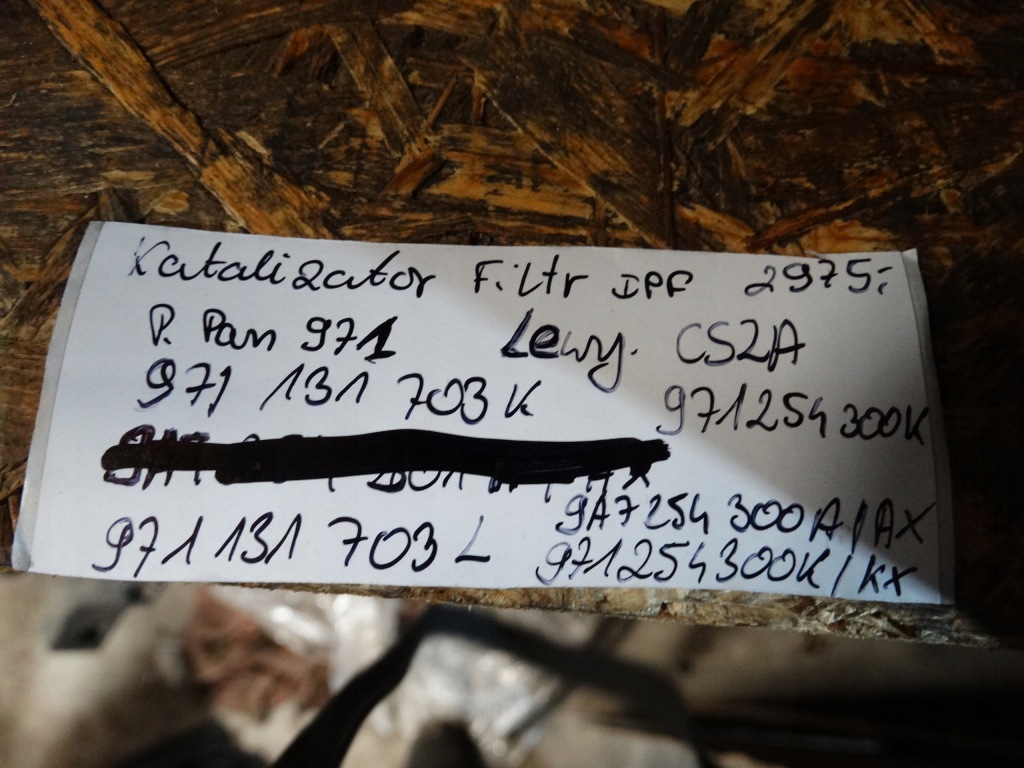 Katalizator Filtr DPF 2975,-
P. Pan 971 Lewy. CS2A
971 131 703 K 971254300K
9A7254300A/AX
971 131 703 L 971254300K/KX